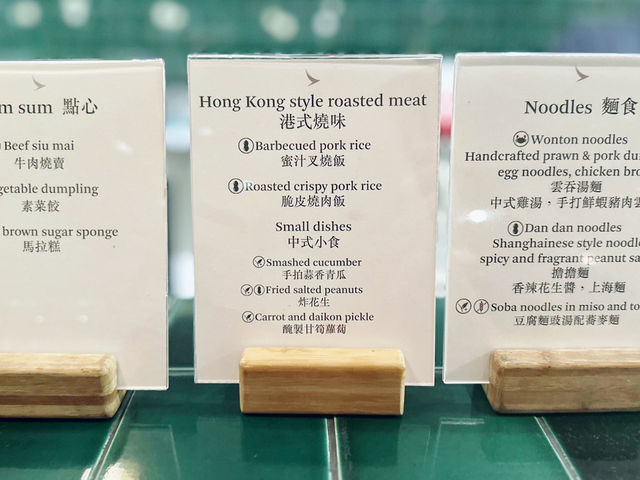 m sum 點心
Beef siu mai
牛肉燒賣
getable dumpling
素菜餃
brown sugar sponge
馬拉糕
Hong Kong style roasted meat
港式燒味
Barbecued pork rice
蜜汁叉燒飯
Roasted crispy pork rice
脆皮燒肉飯
Small dishes
中式小食
Smashed cucumber
手拍蒜香青瓜
Fried salted peanuts
炸花生
Carrot and daikon pickle
醃製甘筍蘿蔔
Noodles 麵食
Wonton noodles
Handcrafted prawn & pork du
egg noodles, chicken bro
雲吞湯麵
中式雞湯，手打鮮蝦豬肉雲
Dan dan noodles
Shanghainese style noodle
spicy and fragrant peanut sa
擔擔麵
香辣花生醬，上海麵
Soba noodles in miso and to
豆腐麵豉湯配蕎麥麵